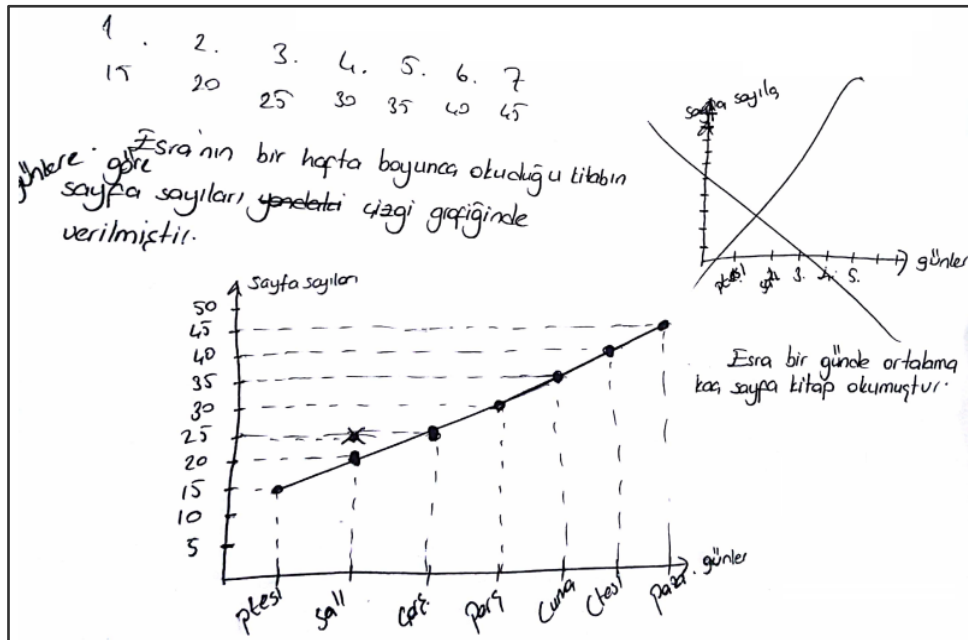 1. 2. 3. 4. 5. 6. 7
15 20 25 30 35 40 45
Esra'nın bir hafta boyunca okuduğu kitabın
günlere göre
sayfa sayıları yandaki çizgi grafiğinde
verilmiştir.
sayfa sayılar
günler
ptesi salı 3. 4. 5.
Esra bir günde ortalama
kaç sayfa kitap okumuştur.
sayfa sayıları
50
45
40
35
30
25
20
15
10
5
ptesi salı çarş. perş cuma ctesi pazar günler